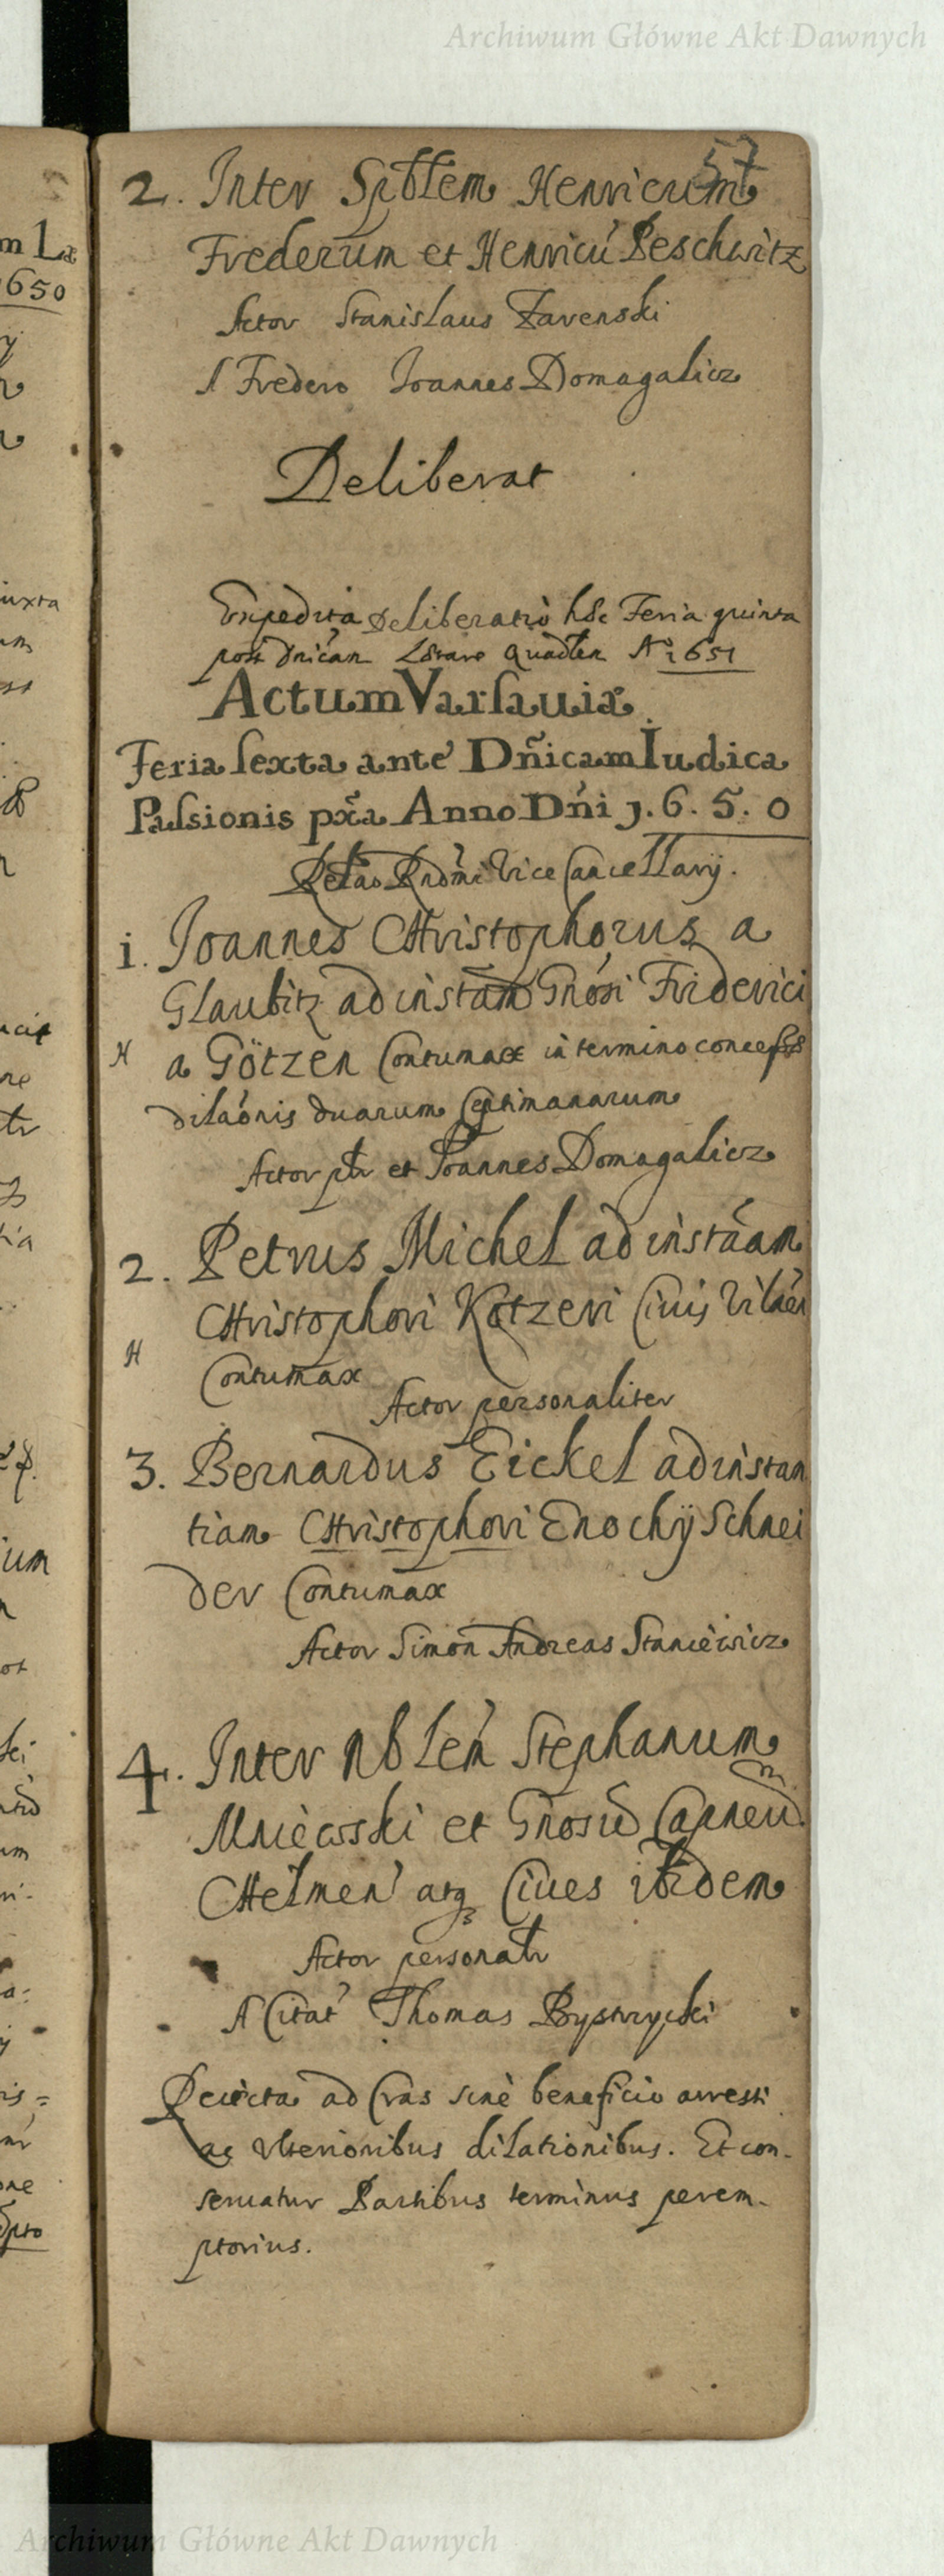 Archiwum Główne Akt Dawnych
57
2. Inter Spblem Henricum
Frederum et Henricū Peschwitz
Actor Stanislaus Zavenski
A Fredero Joannes Domagalicz
Deliberat
Expedita Deliberatio hāc Feria quinta
post Dnicam Lætare Quadlem Aº 1651
Actum Varsauiæ
Feria sexta ante Dñicam Iudica
Passionis pxa Anno Dñi 1.6.5.0
Relao Rndmi Vice Cancellarij.
1. Joannes Christophorus a
Glaubitz ad instām Gnosi Friderici
H a Götzen Contumax in termino concessæ
dilaōnis duarum septimanarum
Actor pltr et Joannes Domagalicz
2. Petrus Michel ad instāam
Christophori Kotzeri Ciuis Vilnen
H Contumax
Actor personaliter
3. Bernardus Eickel ad instan
tiam Christophori Enochij Schnei
der Contumax
Actor Simon Andreas Staniewicz
4. Inter Nblem Stephanum
Mniewski et Gnosum Capneum
Chelmen atq Ciues ibidem
Actor personalr
A Citat Thomas Bystrzycki
Reiecta ad Cras sine beneficio arresti
ac vlterioribus dilationibus. Et con-
seruatur Partibus terminus perem-
ptorius.
m Læ
1650
iuxta
Archiwum Główne Akt Dawnych